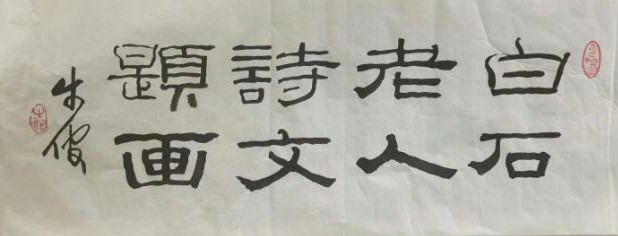 白石
老人
詩文
題画